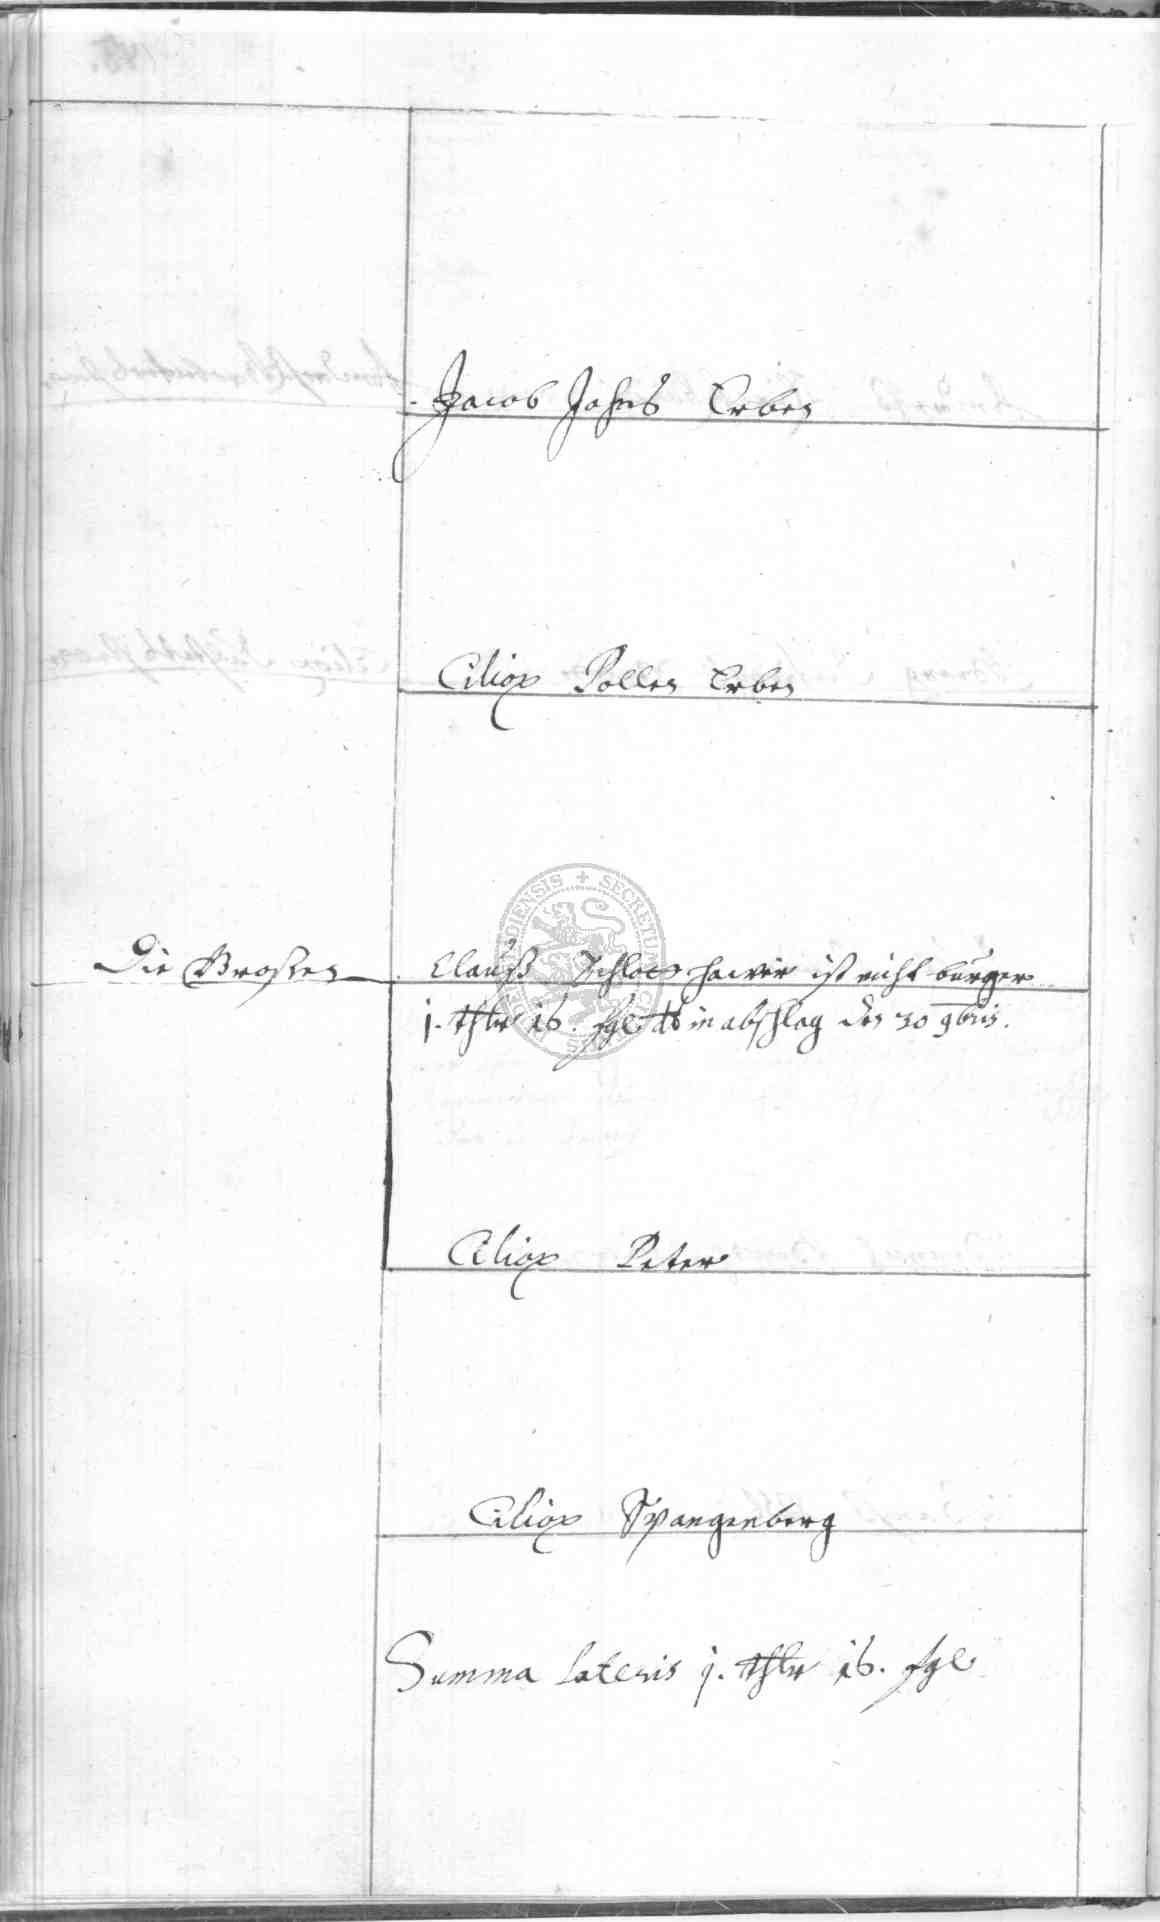 Jacob Johns Erben
Ciliax Pollen Erben
Die Großen
Clauß Schlot ist nicht burger
j. thlr 16. sgl in abschlag den 30 9bris.
Ciliax Peter
Ciliax Spangenberg
Summa lateris j. thlr 16. sgl